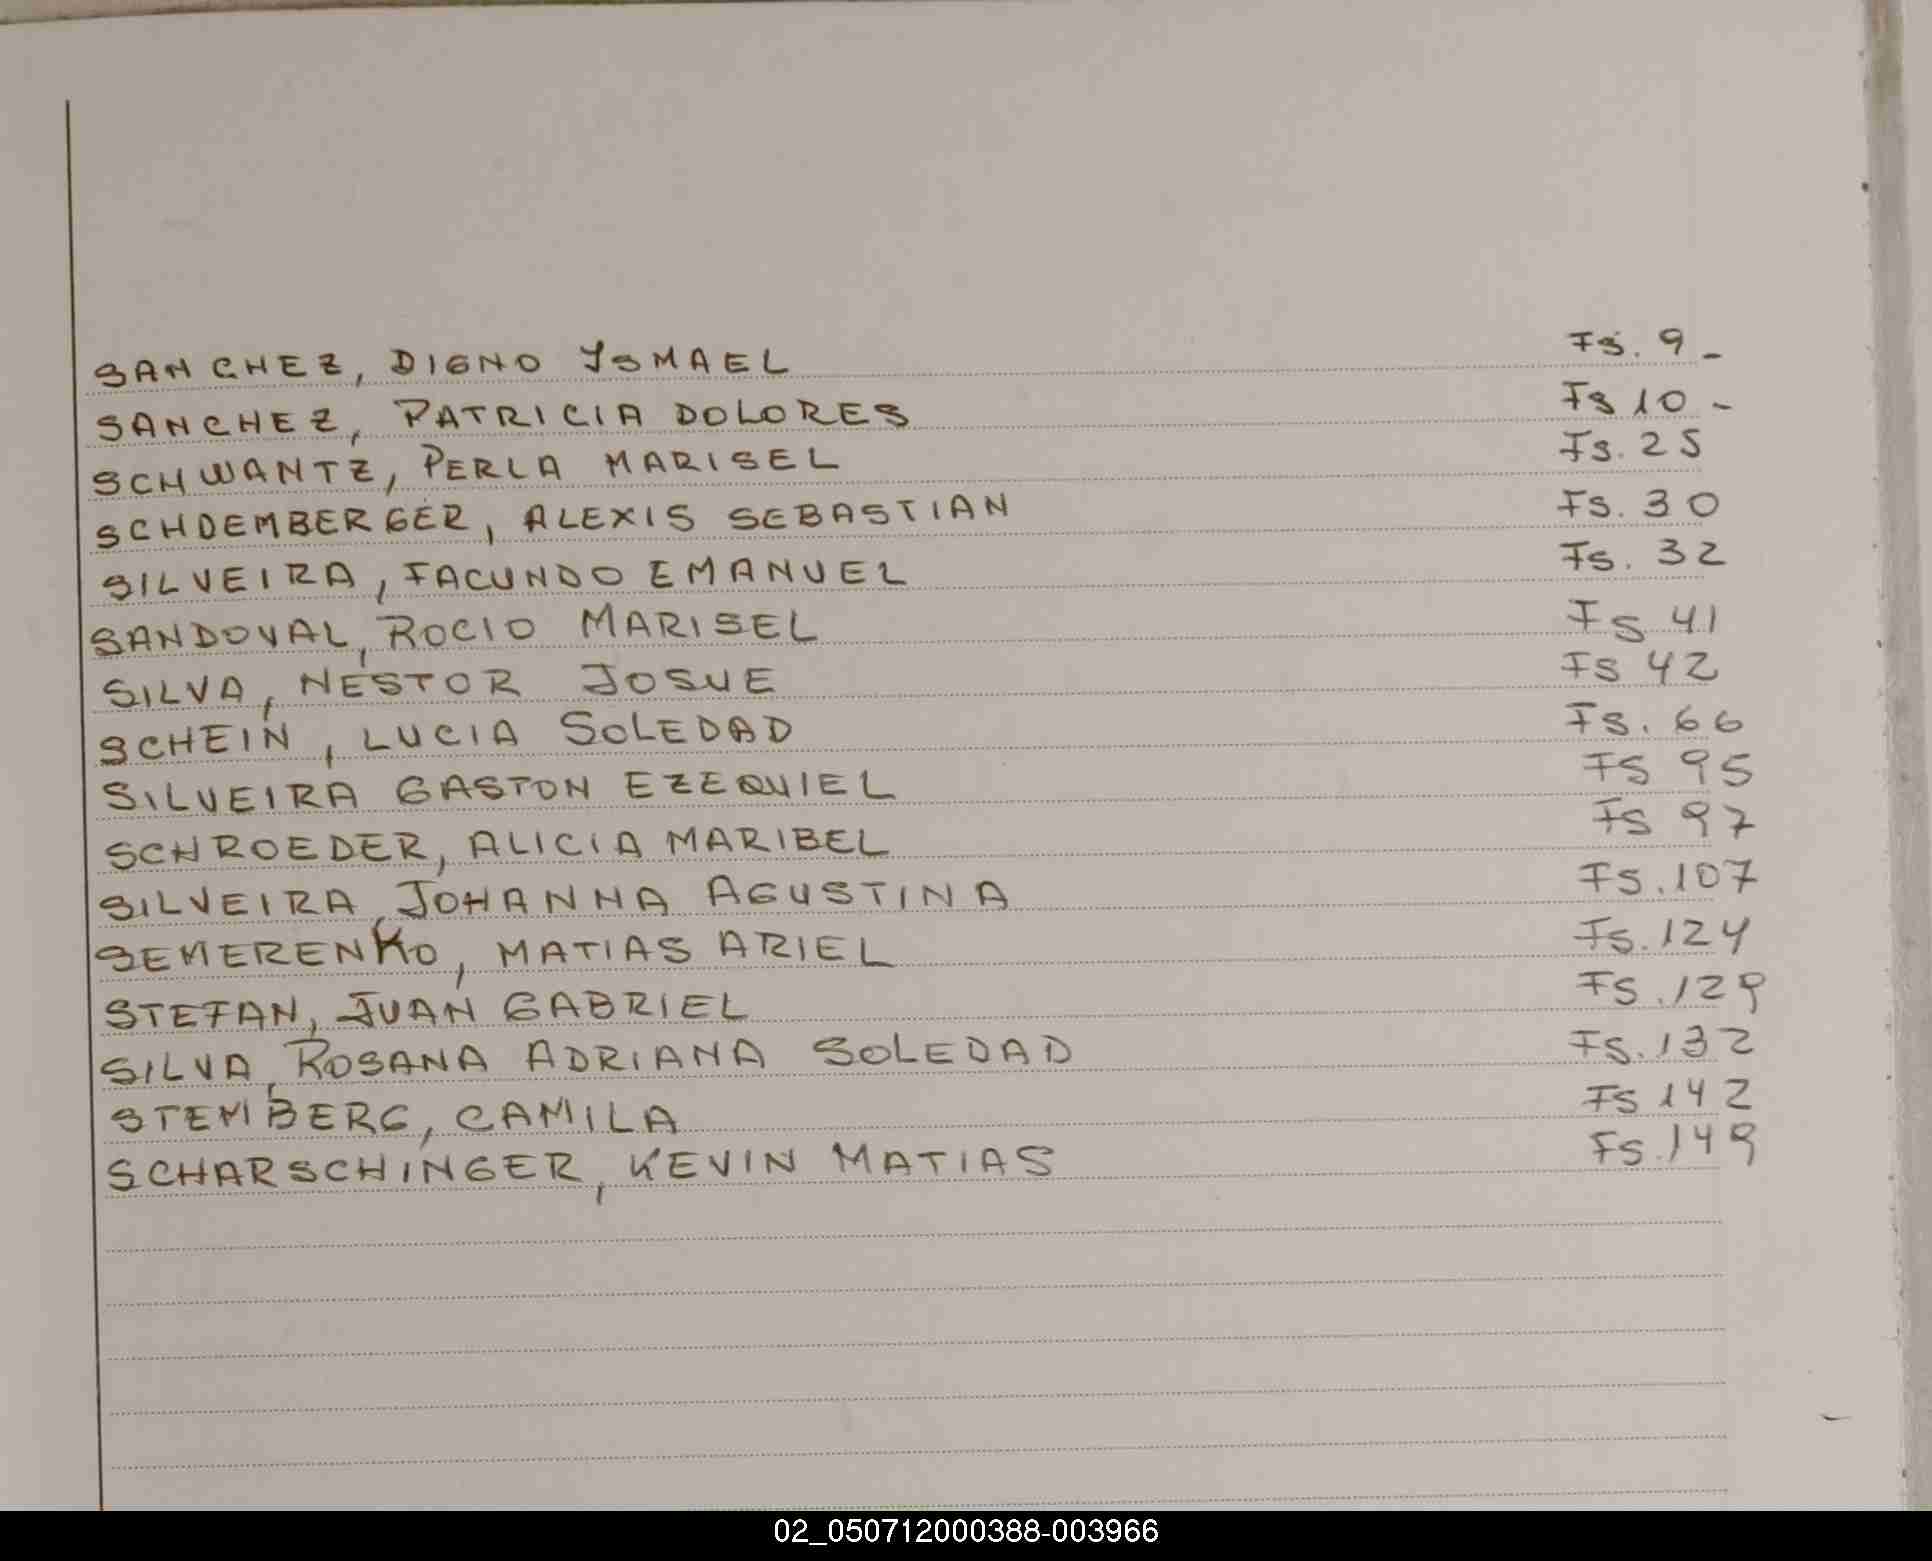 SANCHEZ, DIGNO YSMAEL Fs. 9-
SANCHEZ, PATRICIA DOLORES Fs 10-
SCHWANTZ, PERLA MARISEL Fs. 25
SCHOEMBERGER, ALEXIS SEBASTIAN Fs. 30
SILVEIRA, FACUNDO EMANUEL Fs. 32
SANDOVAL, ROCIO MARISEL Fs 41
SILVA, NESTOR JOSUE Fs 42
SCHEIN, LUCIA SOLEDAD Fs. 66
SILVEIRA GASTON EZEQUIEL Fs 95
SCHROEDER, ALICIA MARIBEL Fs 97
SILVEIRA, JOHANNA AGUSTINA Fs. 107
SEMERENKO, MATIAS ARIEL Fs. 124
STEFAN, JUAN GABRIEL Fs. 129
SILVA, ROSANA ADRIANA SOLEDAD Fs. 132
STEMBERG, CAMILA Fs 142
SCHARSCHINGER, KEVIN MATIAS Fs. 149
02_050712000388-003966